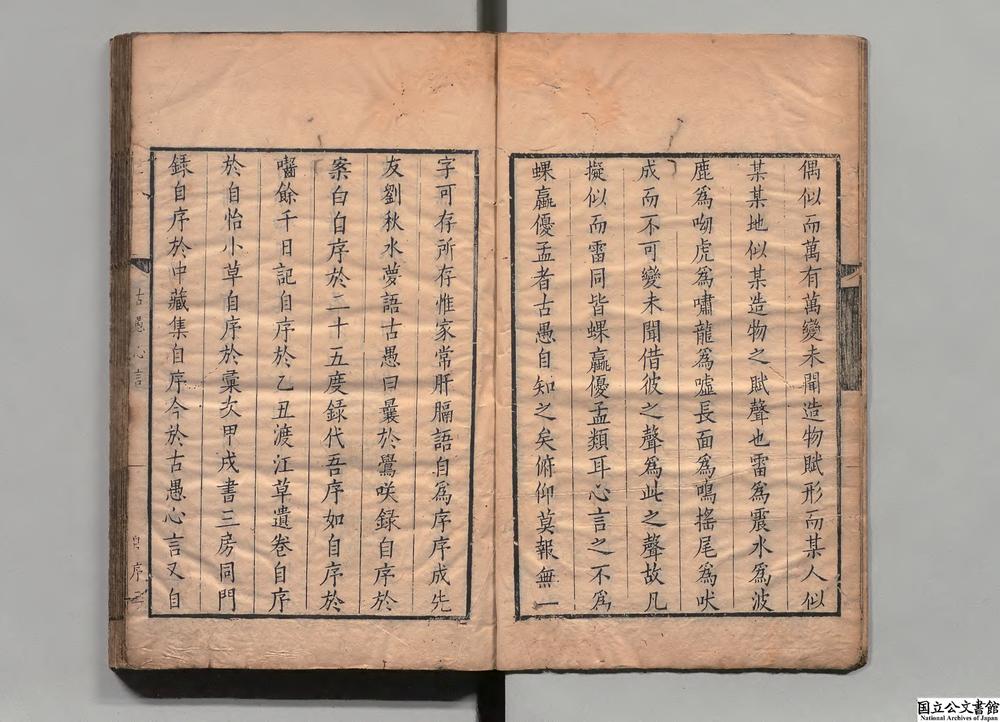 偶似而萬有萬變未聞造物賦形而某人似
某某地似某造物之賦聲也雷為震水為波
鹿為呦虎為嘯龍為噓長面為鳴搖尾為吠
成而不可變未聞借彼之聲為此之聲故凡
擬似而雷同皆蜾蠃優孟類耳心言之不為
蜾蠃優孟者古愚自知之矣俯仰莫報無一
字可存所存惟家常肝膈語自為序序成先
友劉秋水夢語古愚曰曩於鶯咲録自序於
案白自序於二十五度録代吾序如自序於
囈餘千日記自序於乙丑渡江草遺卷自序
於自怡小草自序於彙次甲戌書三房同門
録自序於中藏集自序今於古愚心言又自
古愚心言
自序
国立公文書館
National Archives of Japan